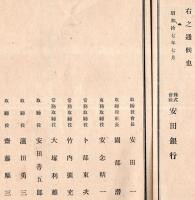 右之通候也
昭和拾七年七月
株式會社 安田銀行
取締役會長 安田一
取締役社長 園部潜
常務取締役 安念精一
常務取締役 卜部東夾
常務取締役 竹内虎充
常務取締役 大塚利雄
取締役 安田善五郎
取締役 濱田勇三
取締役 齋藤